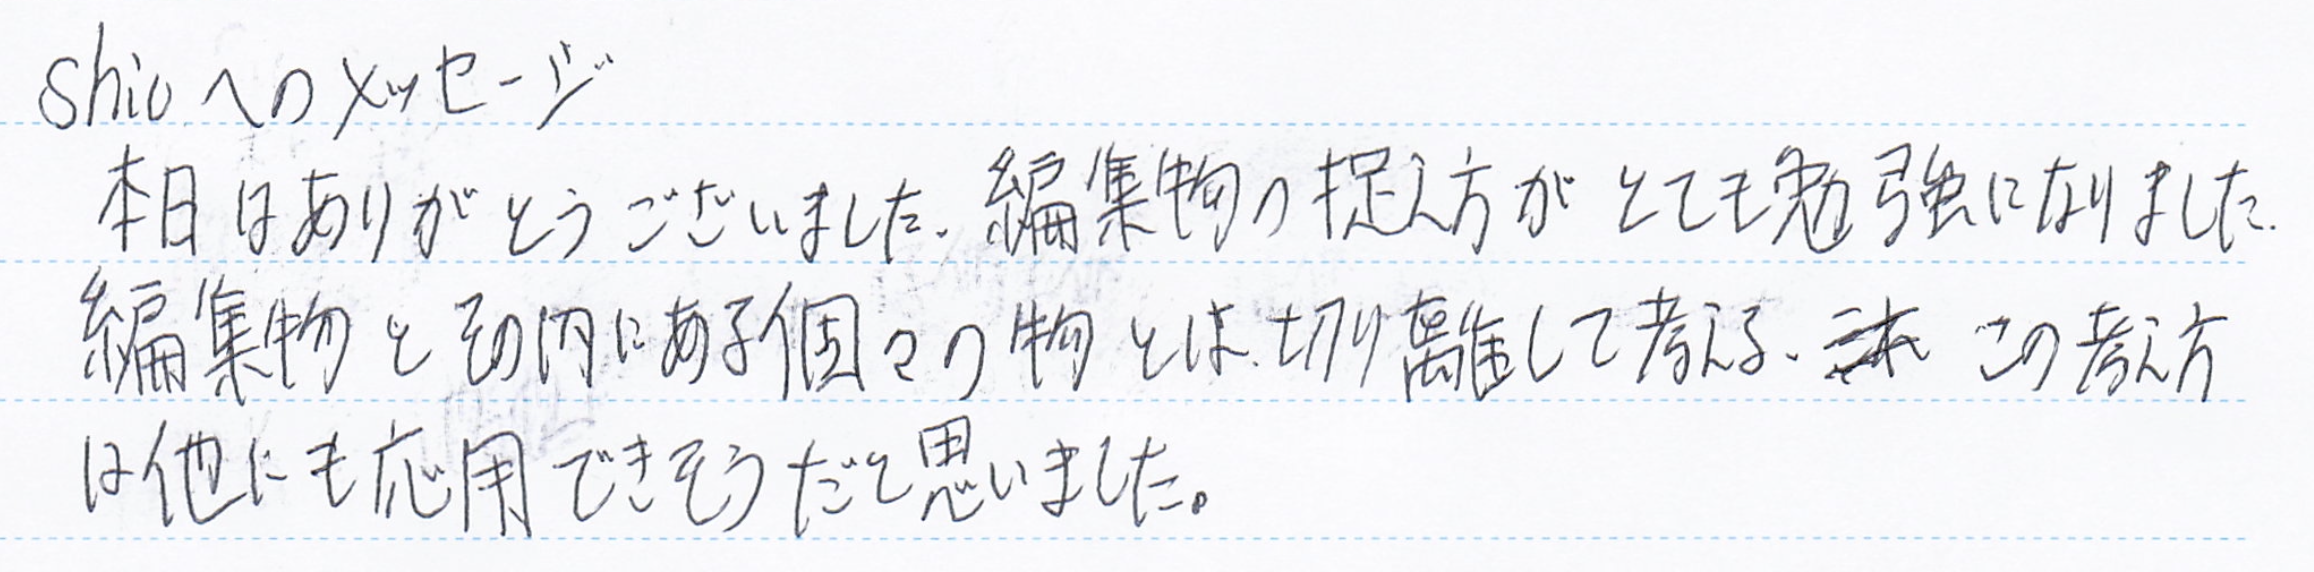 shioへのメッセージ
本日はありがとうございました.編集物の捉え方がとても勉強になりました.
編集物とその内にある個々の物とは切り離して考える、この考え方
は他にも応用できそうだと思いました。